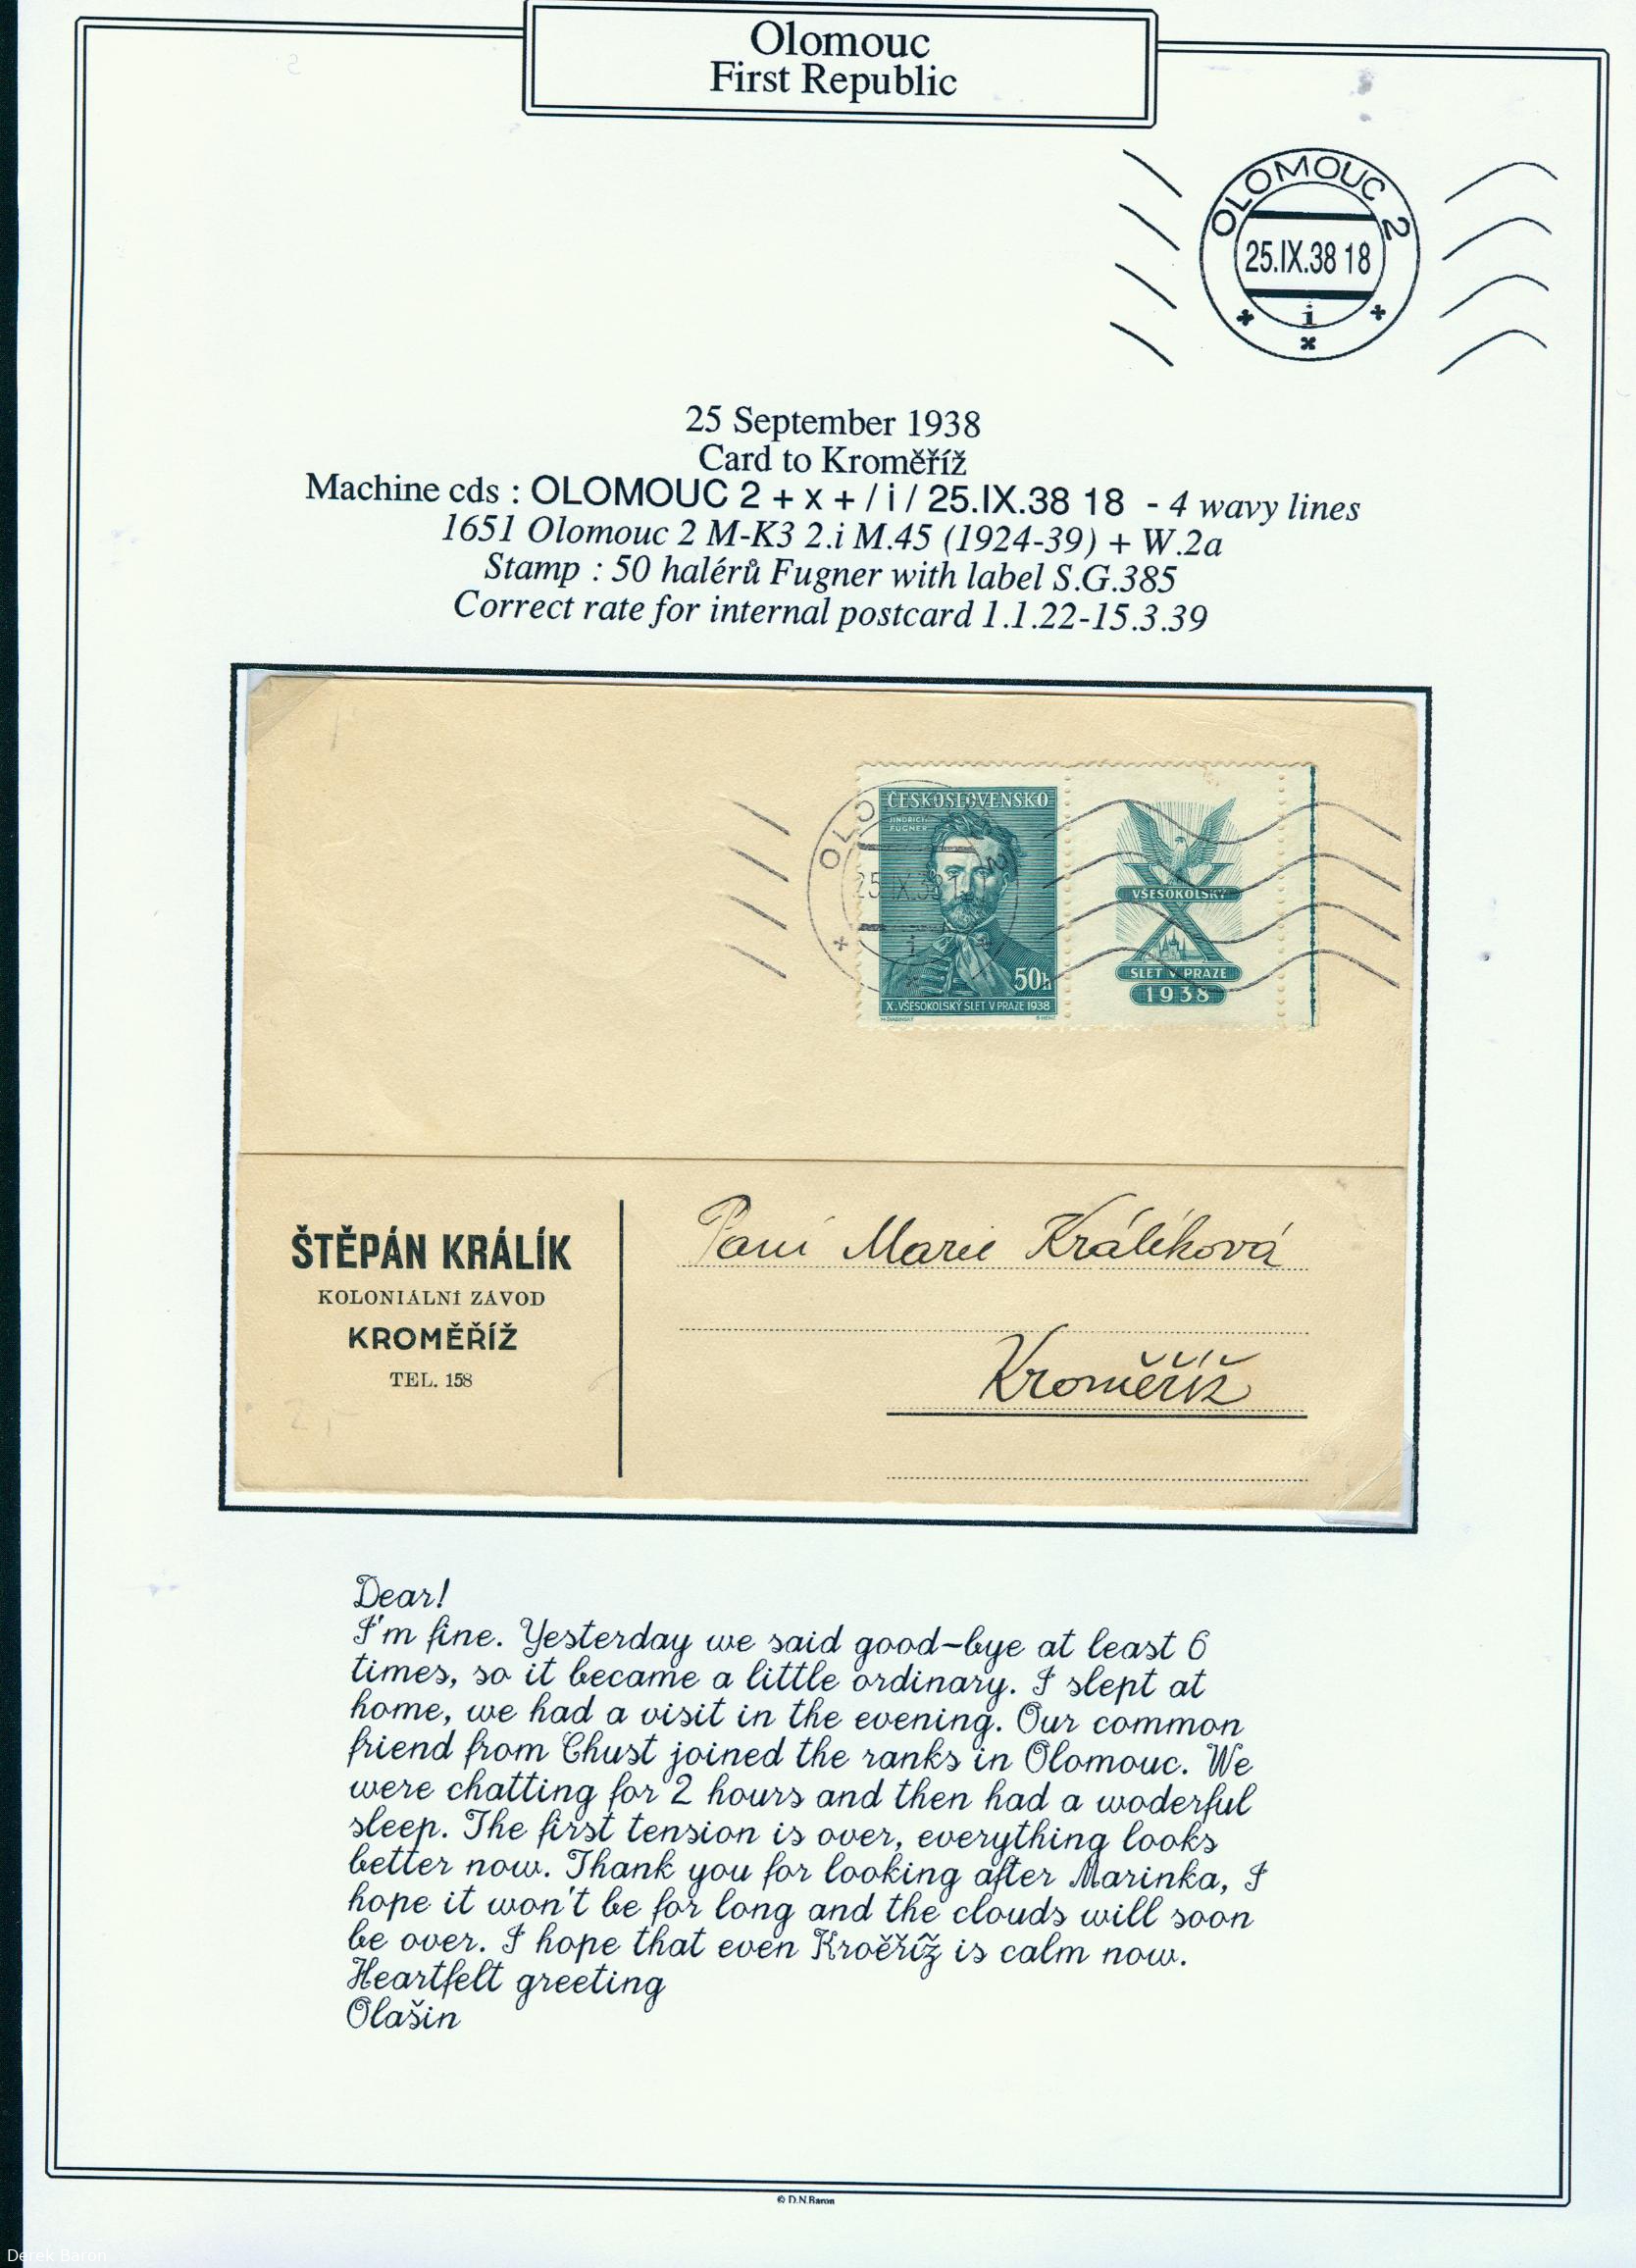 Olomouc
First Republic
OLOMOUC 2
25.IX.38 18
i
25 September 1938
Card to Kroměříž
Machine cds : OLOMOUC 2 + x + / i / 25.IX.38 18 - 4 wavy lines
1651 Olomouc 2 M-K3 2.i M.45 (1924-39) + W.2a
Stamp : 50 halérů Fugner with label S.G.385
Correct rate for internal postcard 1.1.22-15.3.39
ČESKOSLOVENSKO
JINDŘICH
FUGNER
OLO 2
25.IX.38 1
i
50h
X. VŠESOKOLSKÝ SLET V PRAZE 1938
VŠESOKOLSKÝ
SLET V PRAZE
1938
ŠTĚPÁN KRÁLÍK
KOLONIÁLNÍ ZÁVOD
KROMĚŘÍŽ
TEL. 158
Paní Marie Králíková
Kroměříž
2,-
Dear!
I'm fine. Yesterday we said good-bye at least 6
times, so it became a little ordinary. I slept at
home, we had a visit in the evening. Our common
friend from Chust joined the ranks in Olomouc. We
were chatting for 2 hours and then had a woderful
sleep. The first tension is over, everything looks
better now. Thank you for looking after Marinka, I
hope it won't be for long and the clouds will soon
be over. I hope that even Kroěříž is calm now.
Heartfelt greeting
Olašin
© D.N.Baron
Derek Baron